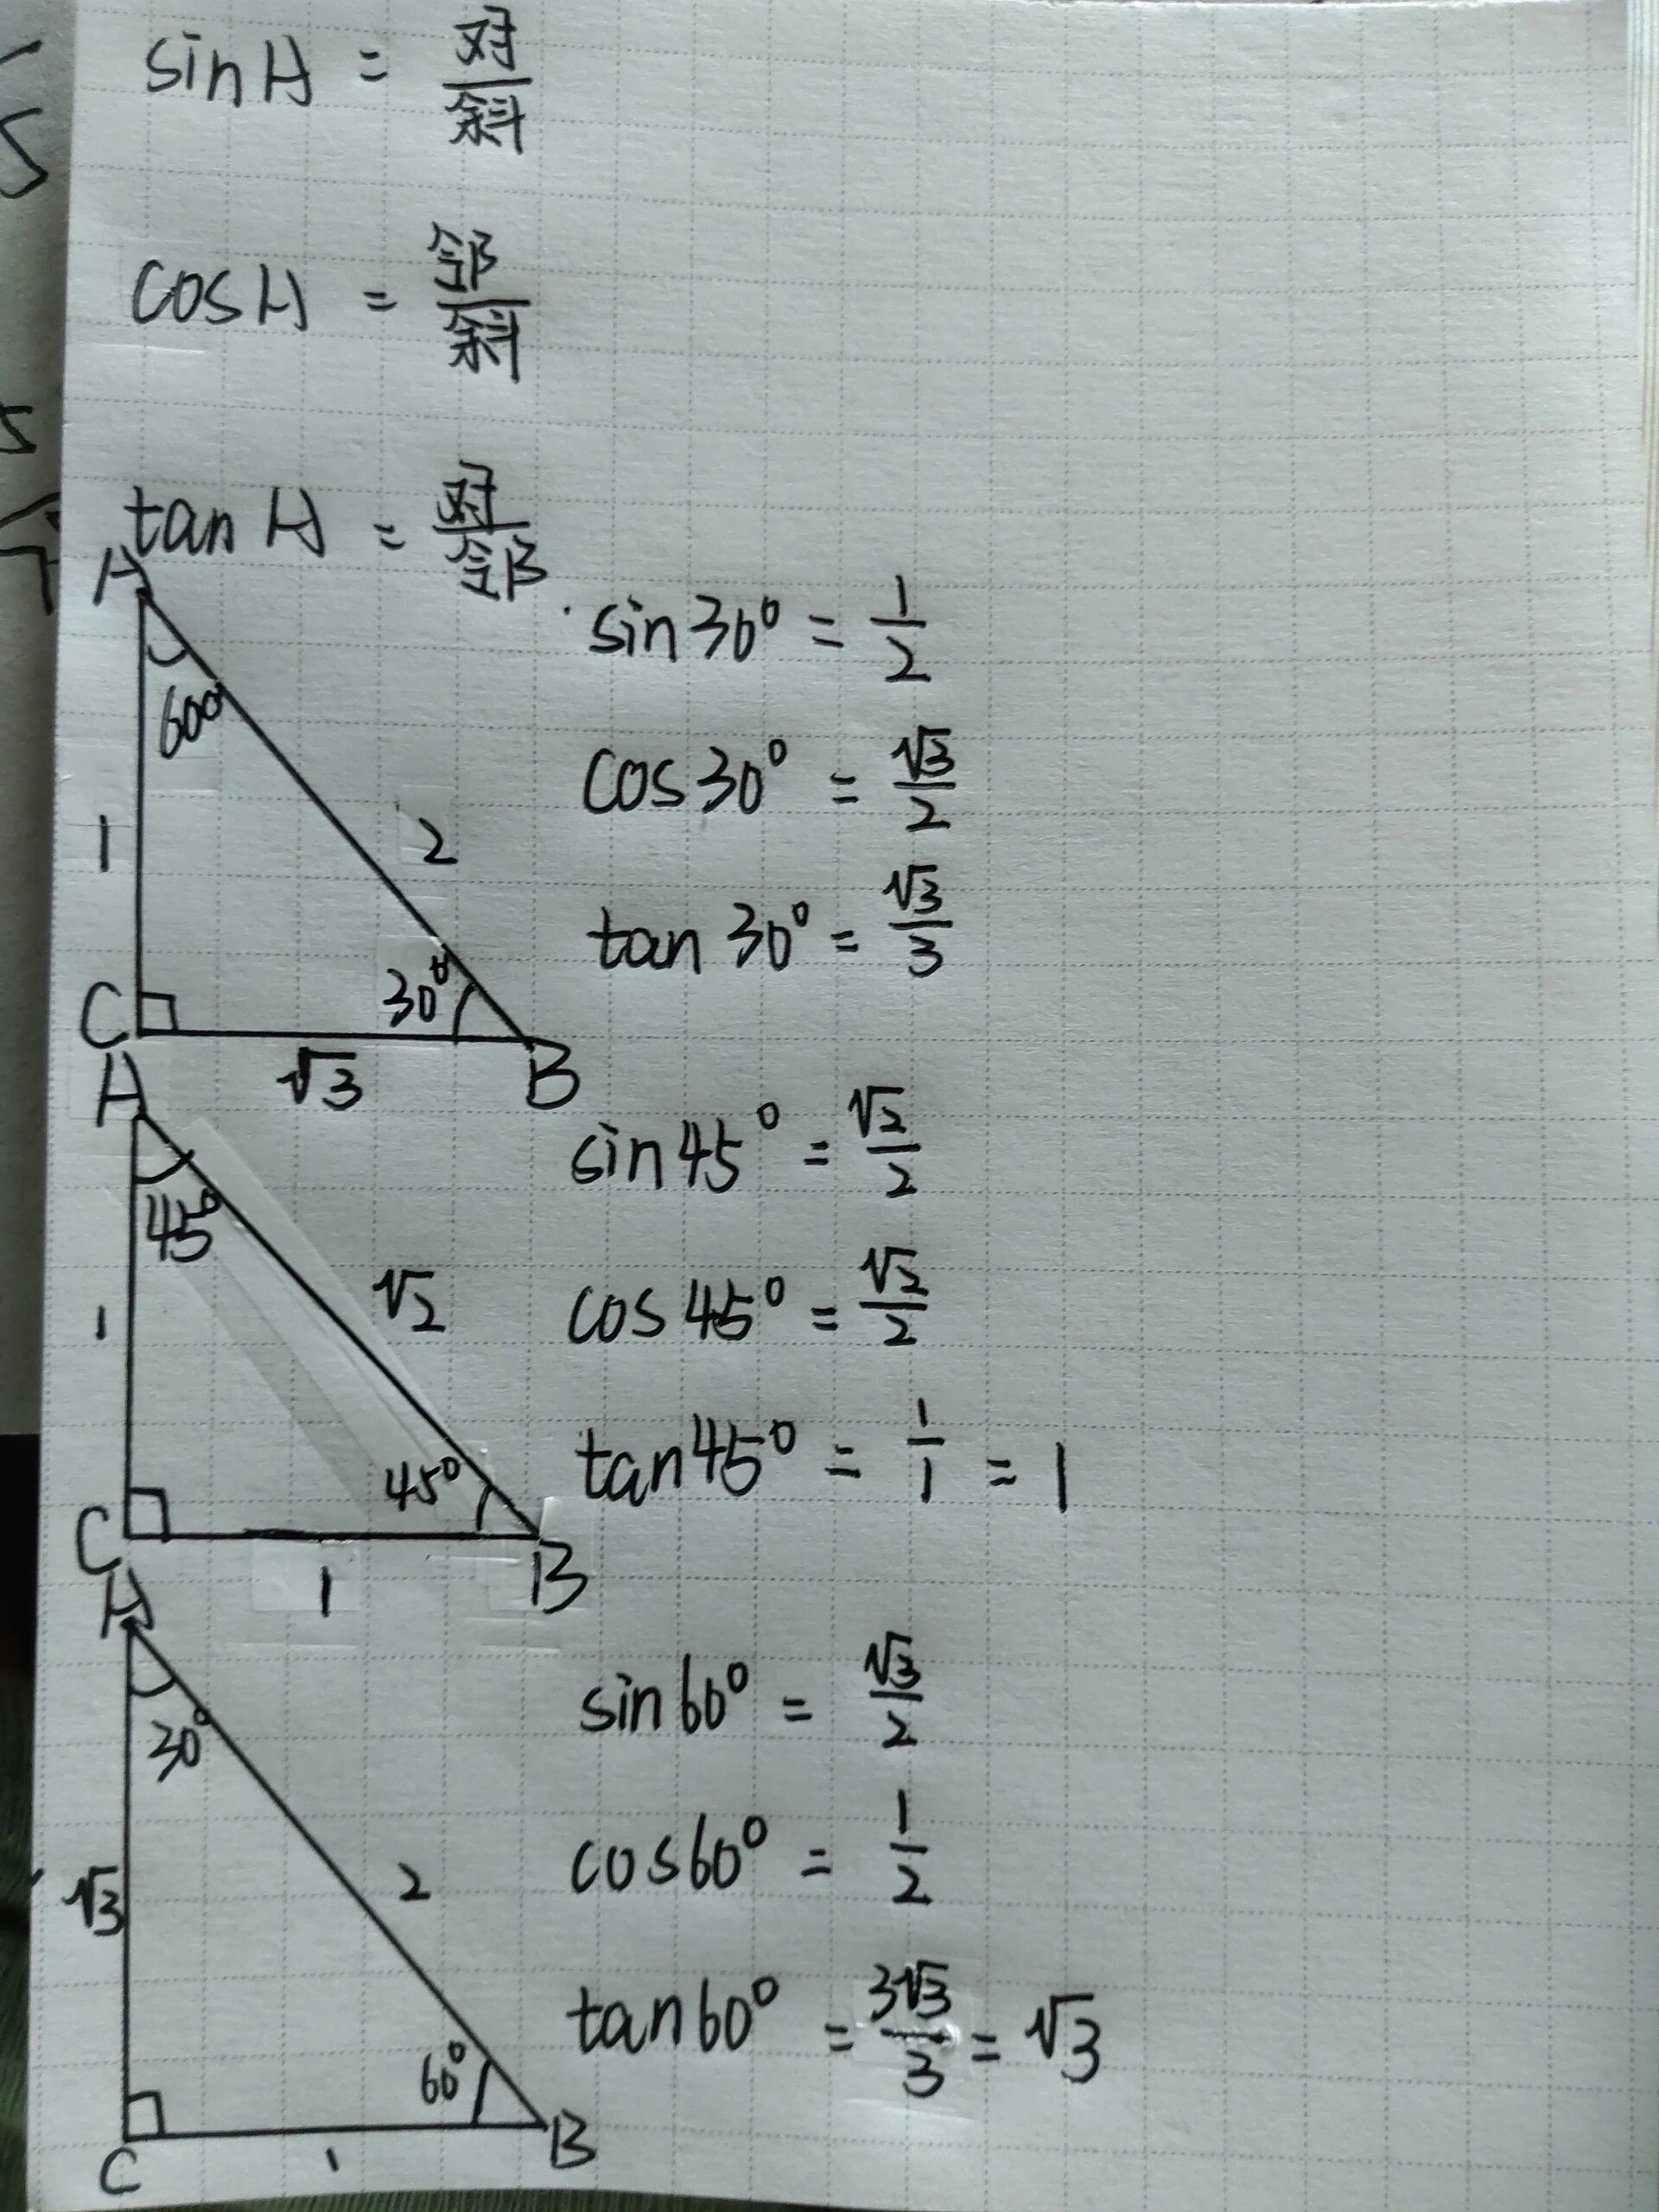 sinA = 对/斜
cosA = 邻/斜
tanA = 对/邻
A
60°
1
2
30°
C
√3
B
sin30° = 1/2
cos30° = √3/2
tan30° = √3/3
A
45°
1
√2
45°
C
1
B
sin45° = √2/2
cos45° = √2/2
tan45° = 1/1 = 1
A
30°
√3
2
60°
C
1
B
sin60° = √3/2
cos60° = 1/2
tan60° = 3√3/3 = √3